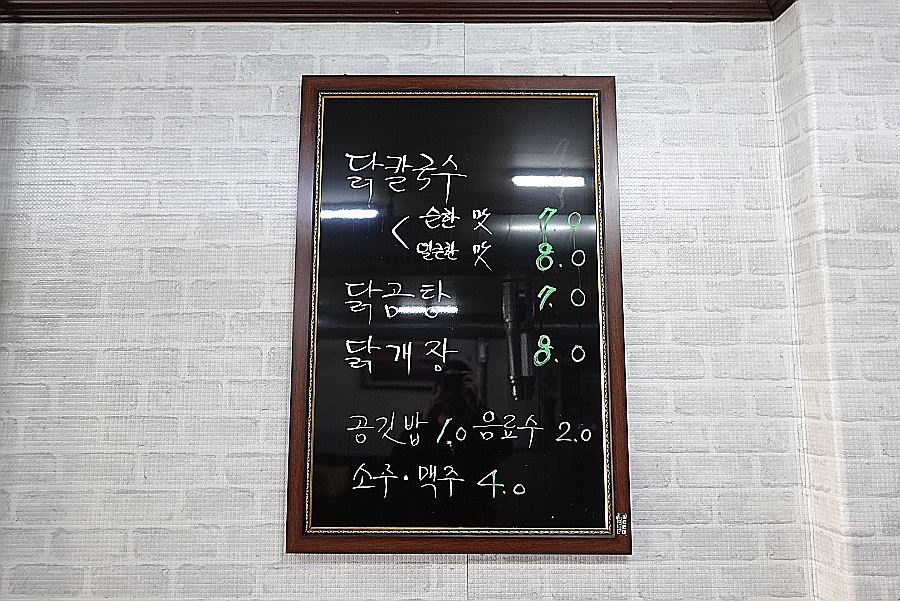 닭칼국수
< 순한 맛 7.0
얼큰한 맛 8.0
닭곰탕 7.0
닭개장 8.0
공깃밥 1.0 음료수 2.0
소주·맥주 4.0